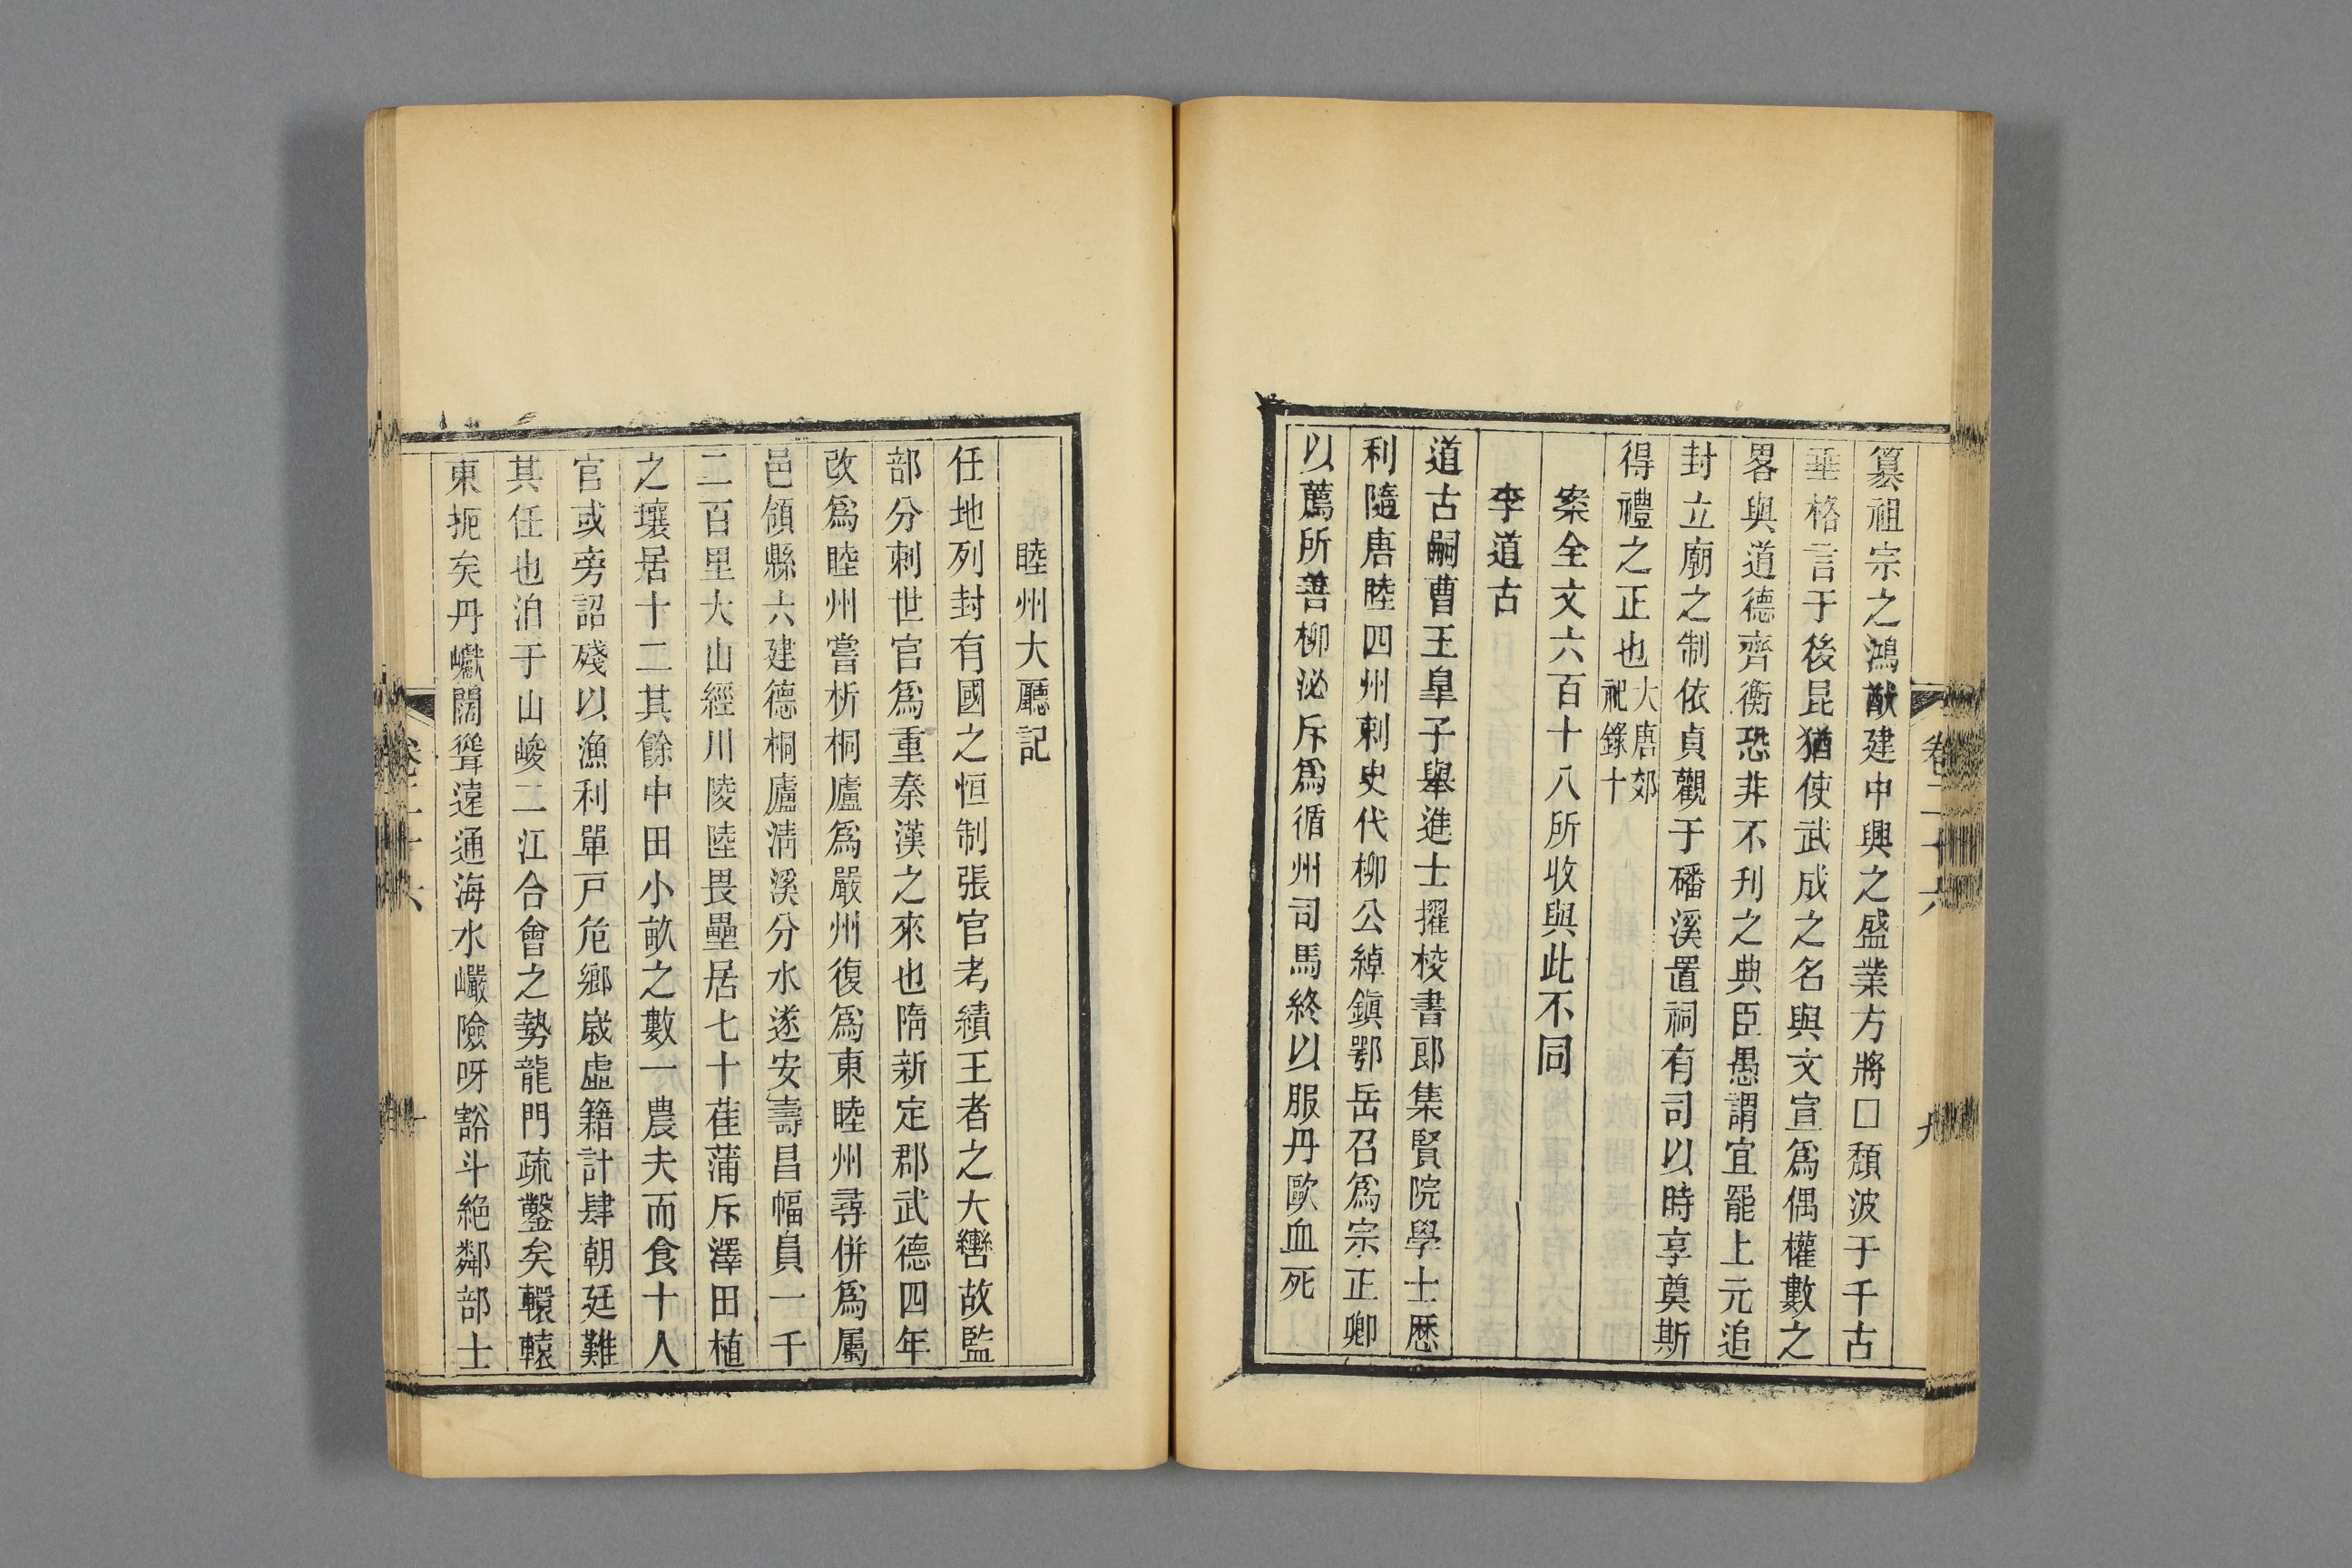 纂祖宗之鴻猷建中興之盛業方將□頹波于千古
垂格言于後昆猶使武成之名與文宣爲偶權數之
畧與道德齊衡恐非不刋之典臣愚謂宜罷上元追
封立廟之制依貞觀于磻溪置祠有司以時享奠斯
得禮之正也大唐郊祀錄十
案全文六百十八所收與此不同
李道古
道古嗣曹王皐子舉進士擢校書郎集賢院學士歷
利隨唐睦四州刺史代柳公綽鎮鄂岳召爲宗正卿
以薦所善柳泌斥爲循州司馬終以服丹歐血死
睦州大廳記
任地列封有國之恒制張官考績王者之大轡故監
部分刺世官爲重秦漢之來也隋新定郡武德四年
改爲睦州嘗析桐廬爲嚴州復爲東睦州尋併爲屬
邑領縣六建德桐廬淸溪分水遂安壽昌幅員一千
二百里大山經川陵陸畏壘居七十萑蒲斥澤田植
之壤居十二其餘中田小畝之數一農夫而食十人
官或旁詔殘以漁利單戸危鄉嵗虛籍計肆朝廷難
其任也洎于山峻二江合會之勢龍門疏鑿矣轘轅
東扼矣丹巘闊聳遠通海水巗險呀豁斗絶鄰部士
卷二十六
九